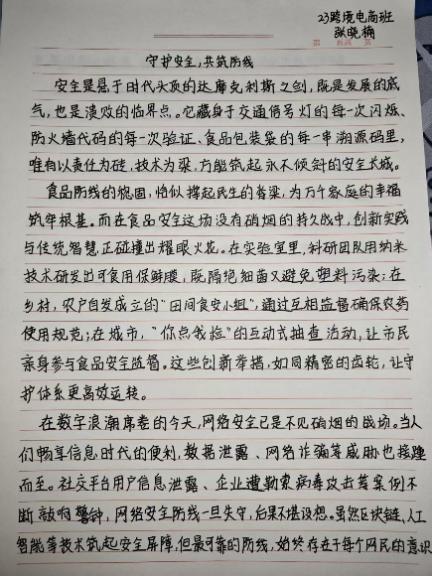 23跨境电商班
张晓楠
守护安全,共筑防线
安全是悬于时代头顶的达摩克利斯之剑,既是发展的底
气,也是溃败的临界点。它藏身于交通信号灯的每一次闪烁、
防火墙代码的每一次验证、食品包装袋的每一串溯源码里,
唯有以责任为砖,技术为梁,方能筑起永不倾斜的安全长城。
食品防线的稳固,恰似撑起民生的脊梁,为万千家庭的幸福
筑牢根基。而在食品安全这场没有硝烟的持久战中,创新实践
与传统智慧正碰撞出耀眼火花。在实验室里,科研团队用纳米
技术研发出可食用保鲜膜,既隔绝细菌又避免塑料污染;在
乡村,农户自发成立的“田间食安小组”,通过互相监督确保农药
使用规范;在城市,“你点我检”的互动式抽查活动,让市民
亲身参与食品安全监督。这些创新举措,如同精密的齿轮,让守
护体系更高效运转。
在数字浪潮席卷的今天,网络安全已是不见硝烟的战场。当人
们畅享信息时代的便利,数据泄露、网络诈骗等威胁也接踵
而至。社交平台用户信息泄露、企业遭勒索病毒攻击等案例不
断敲响警钟,网络安全防线一旦失守,后果不堪设想。虽然区块链、人工
智能等技术筑起安全屏障,但最可靠的防线,始终存在于每个网民的意识